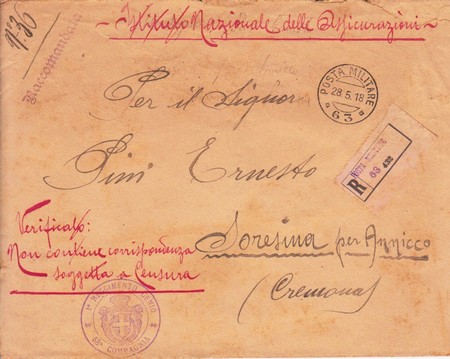 Istituto Nazionale delle Assicurazioni
Raccomandata
POSTA MILITARE
28.5.18
63
Per il Signor
Pini Ernesto
R
POSTA MILITARE
63
Verificato:
Non contiene corrispondenza
soggetta a Censura
Soresina per Annicco
(Cremona)
1° REGGIMENTO GENIO
COMPAGNIA